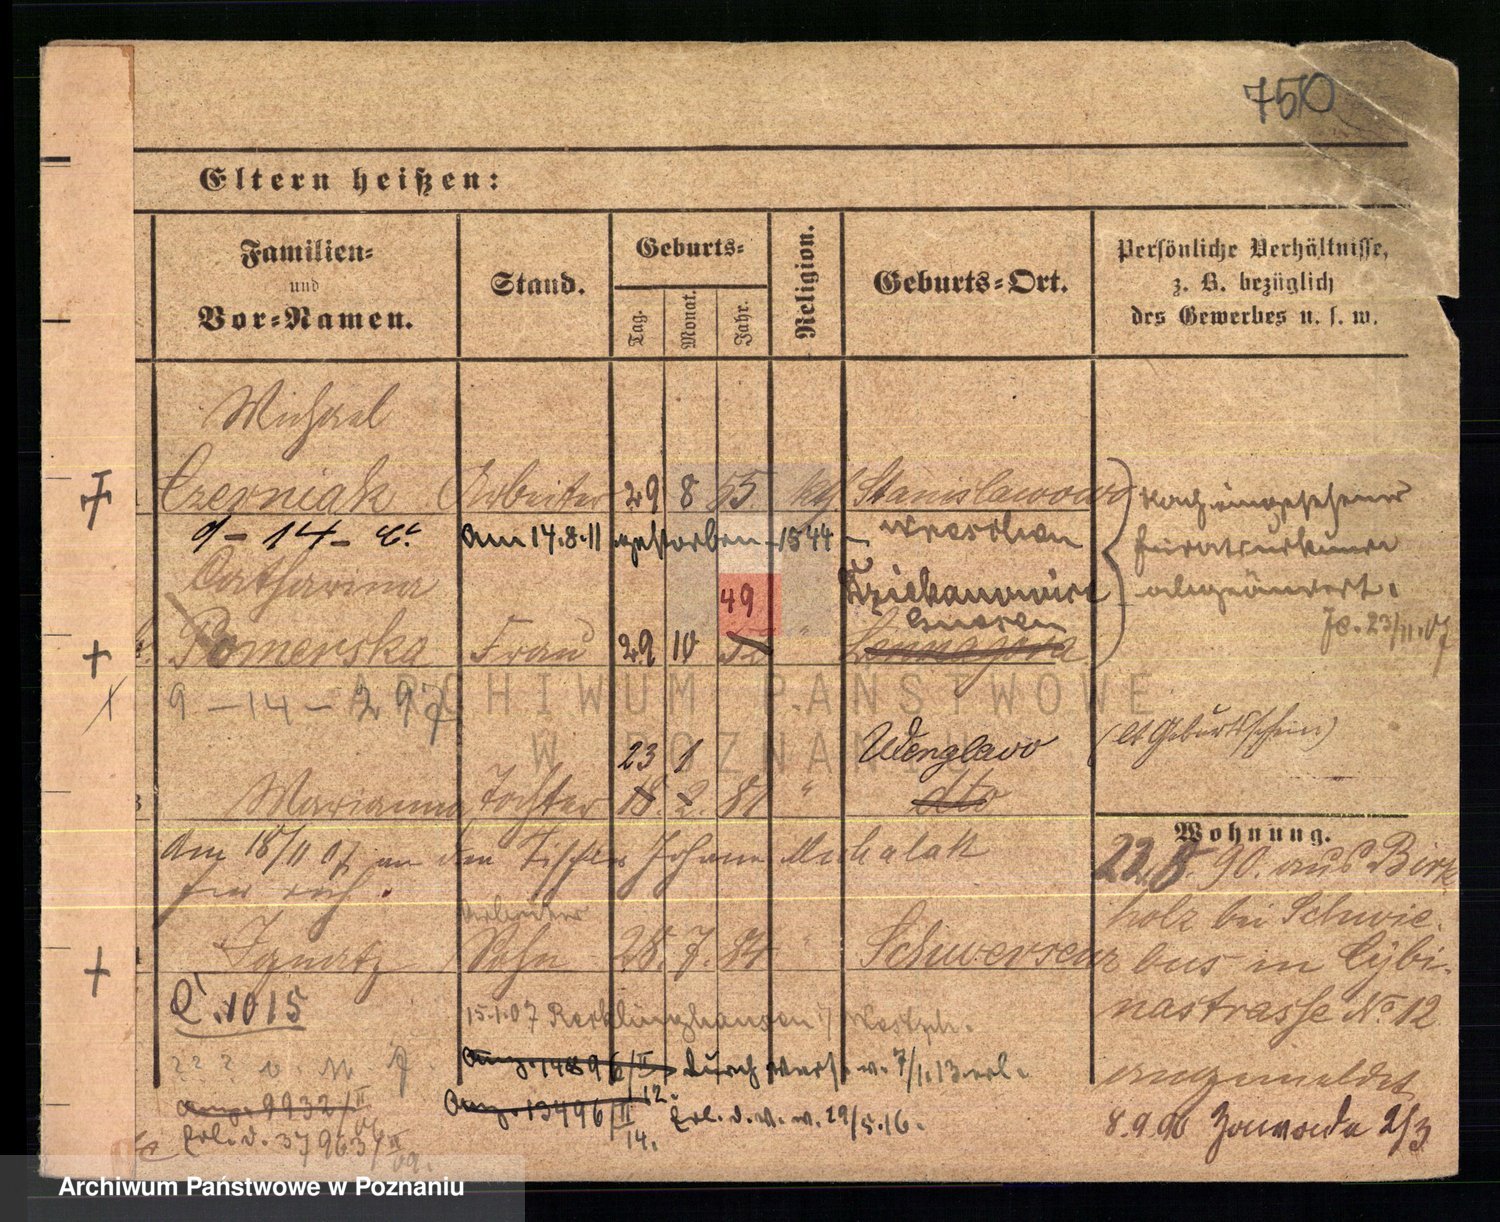 750
Eltern heißen:
Familien- und Vor-Namen.
Stand.
Geburts-
Tag.
Monat.
Jahr.
Religion.
Geburts-Ort.
Persönliche Verhältnisse,
z. B. bezüglich
des Gewerbes u. s. w.
Michael
Czerniak Arbeiter 29 8 55. kth. Stanislawowo
9-14- am 14.8.11 gestorben -1544- Wreschen
Catharina
49
Gnesen
Pomerska Frau 29 10 "
9-14-297
nach eingesehener
abgeändert.
23/11.07
23 1 Wenglewo
(lt Geburtsschein)
Marianna Tochter 18. 2. 87 " dto
Am 18/11 07 an den Tischler Johann Michalak
Wohnung.
22.8. 90. aus Birk
holz bei Schwie-
bus in Cybi-
nastrasse No 12
angemeldet
8.9.90 Zawada 2/3
Arbeiter
Ignatz Sohn 28. 7. 84 " Schwersenz
1015
15.1.07 Recklinghausen / Westph.
Ang. 14896/II 12. durch v. 7/1.13 erl.
??? v. N. J.
Ang. 9932/II
Ang. 13496/II 14. Erl. d. V. v. 29/5.16.
Erl. d. 37963/II 09.
ARCHIWUM PAŃSTWOWE
W POZNANIU
Archiwum Państwowe w Poznaniu